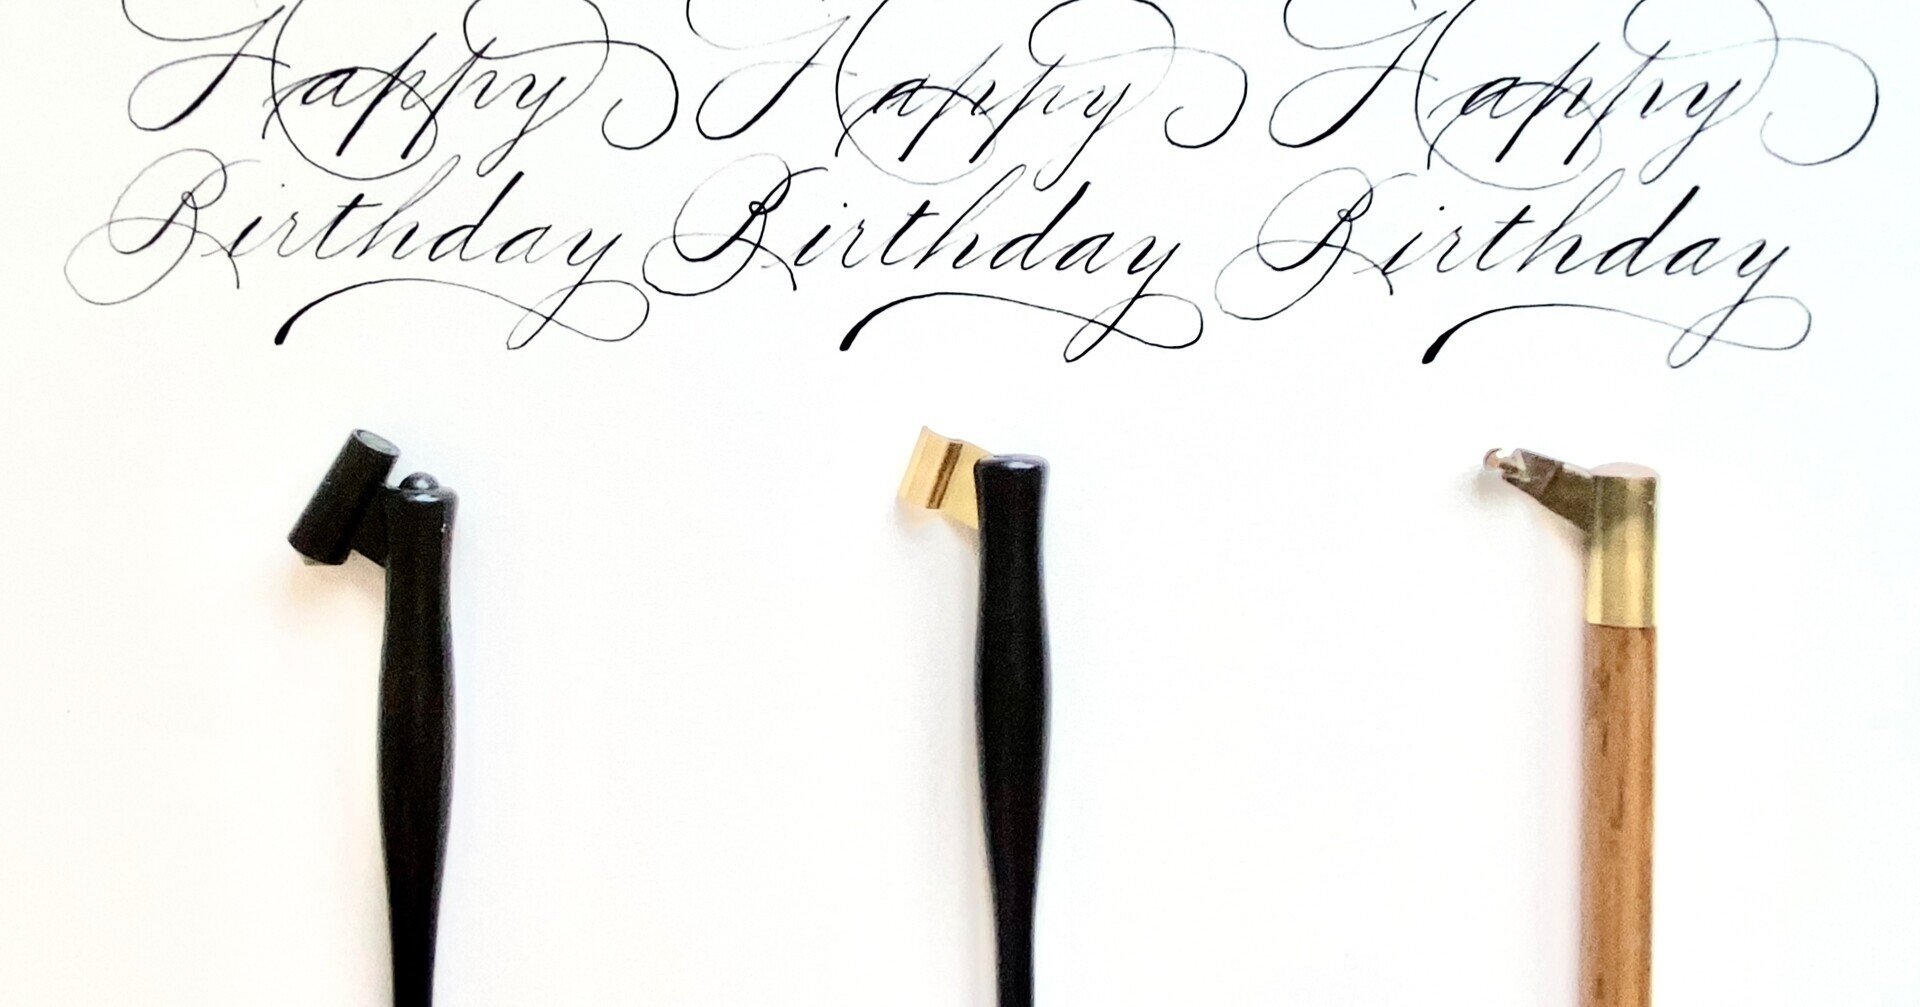 Happy Happy Happy
Birthday Birthday Birthday